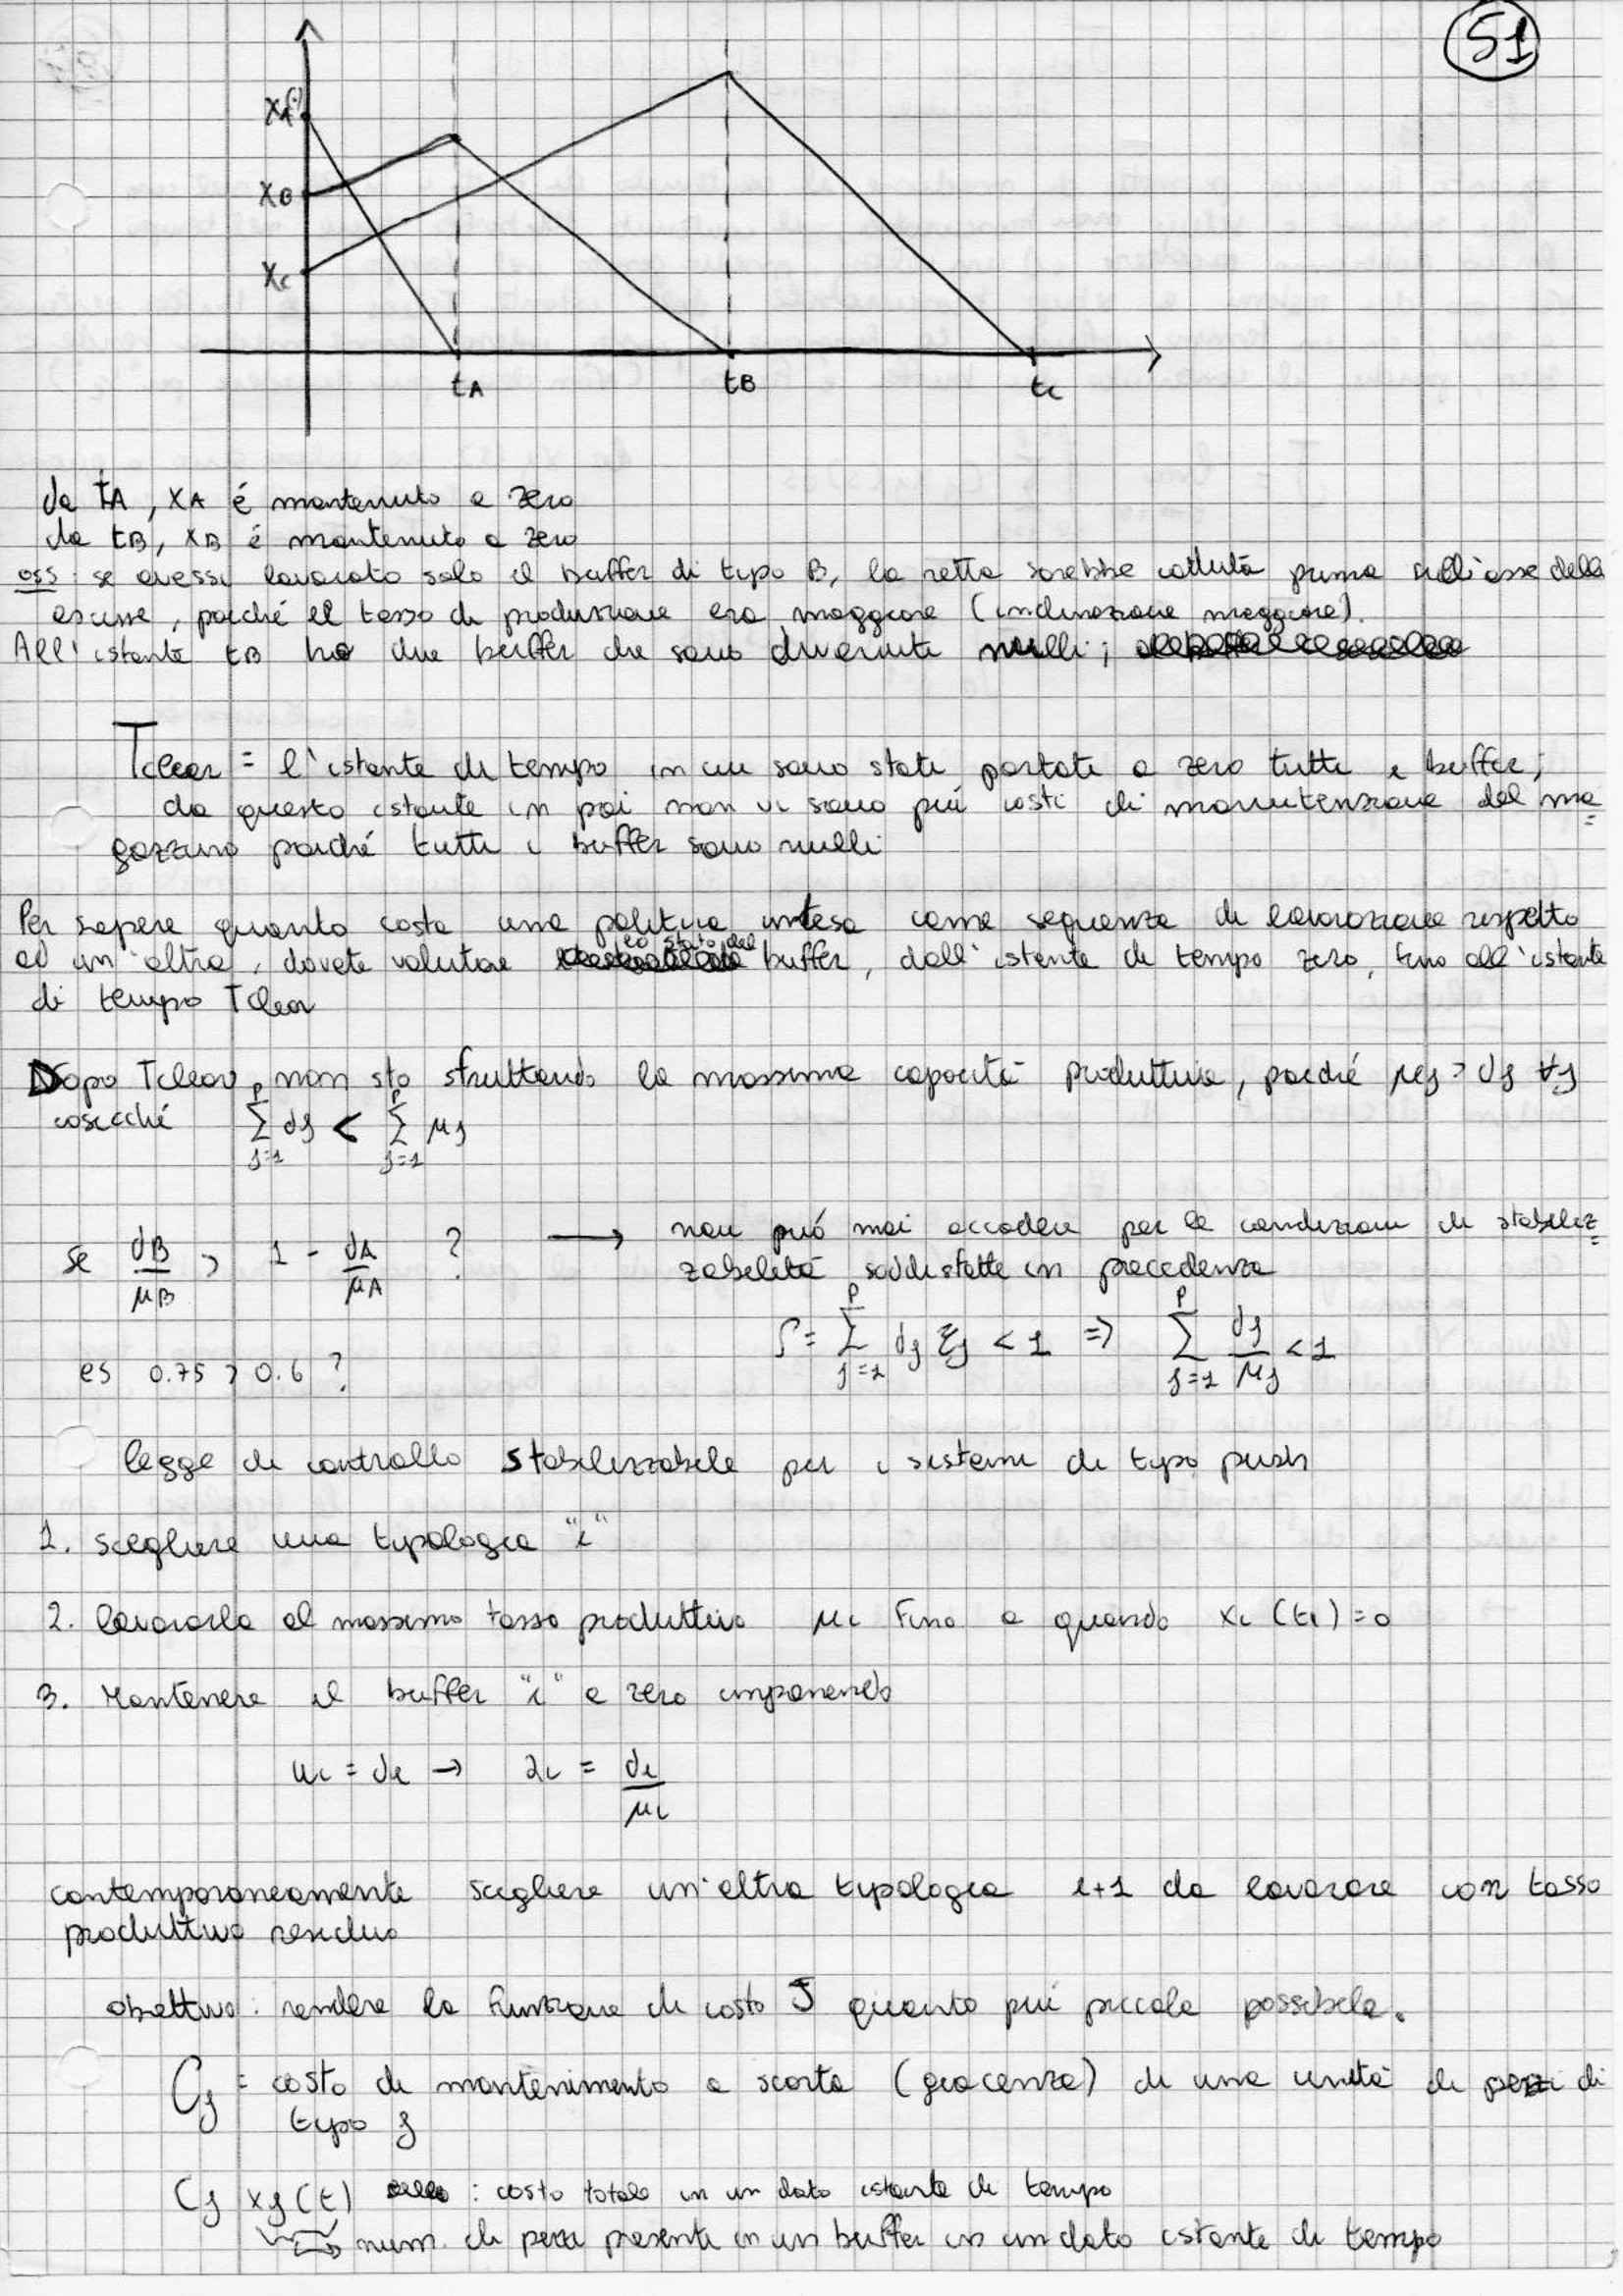 51
XA(·)
XB
Xc
tA
tB
tc
da tA, XA é mantenuto a zero
da tB, XB é mantenuto a zero
oss: se avessi lavorato solo il buffer di tipo B, la retta sarebbe caduta prima sull'asse delle
ascisse, poiché il tasso di produzione era maggiore (inclinazione maggiore).
All'istante tB ho due buffer che sono diventati nulli;
Tclear = l'istante di tempo in cui sono stati portati a zero tutti i buffer;
da questo istante in poi non vi sono più costi di manutenzione del ma
gazzino poiché tutti i buffer sono nulli
Per sapere quanto costa una politica intesa come sequenza di lavorazione rispetto
ad un'altra, dovete valutare lo stato del buffer, dall'istante di tempo zero, fino all'istante
di tempo Tclear
Dopo Tclear, non sto sfruttando la massima capacità produttiva, poiché μj > dj ∀j
cosicché Σ(j=1..P) dj < Σ(j=1..P) μj
se dB/μB > 1 - dA/μA ? → non può mai accadere per le condizioni di stabiliz
zabilità soddisfatte in precedenza
ρ = Σ(j=1..P) dj τj < 1 => Σ(j=1..P) dj/μj < 1
es 0.75 > 0.6 ?
legge di controllo stabilizzabile per i sistemi di typo push
1. scegliere una typologia "i"
2. lavorarla al massimo tasso produttivo μi Fino a quando xi (ti) = 0
3. Mantenere il buffer "i" a zero imponendo
ui = di → λi = di/μi
contemporaneamente scegliere un'altra typologia i+1 da lavorare con tasso
produttivo residuo
obiettivo: rendere la funzione di costo J quanto più piccola possibile.
Cj = costo di mantenimento a scorta (giacenza) di una unità di pezzi di
typo j
Cj xj(t) : costo totale in un dato istante di tempo
→ num. di pezzi presenti in un buffer in un dato istante di tempo